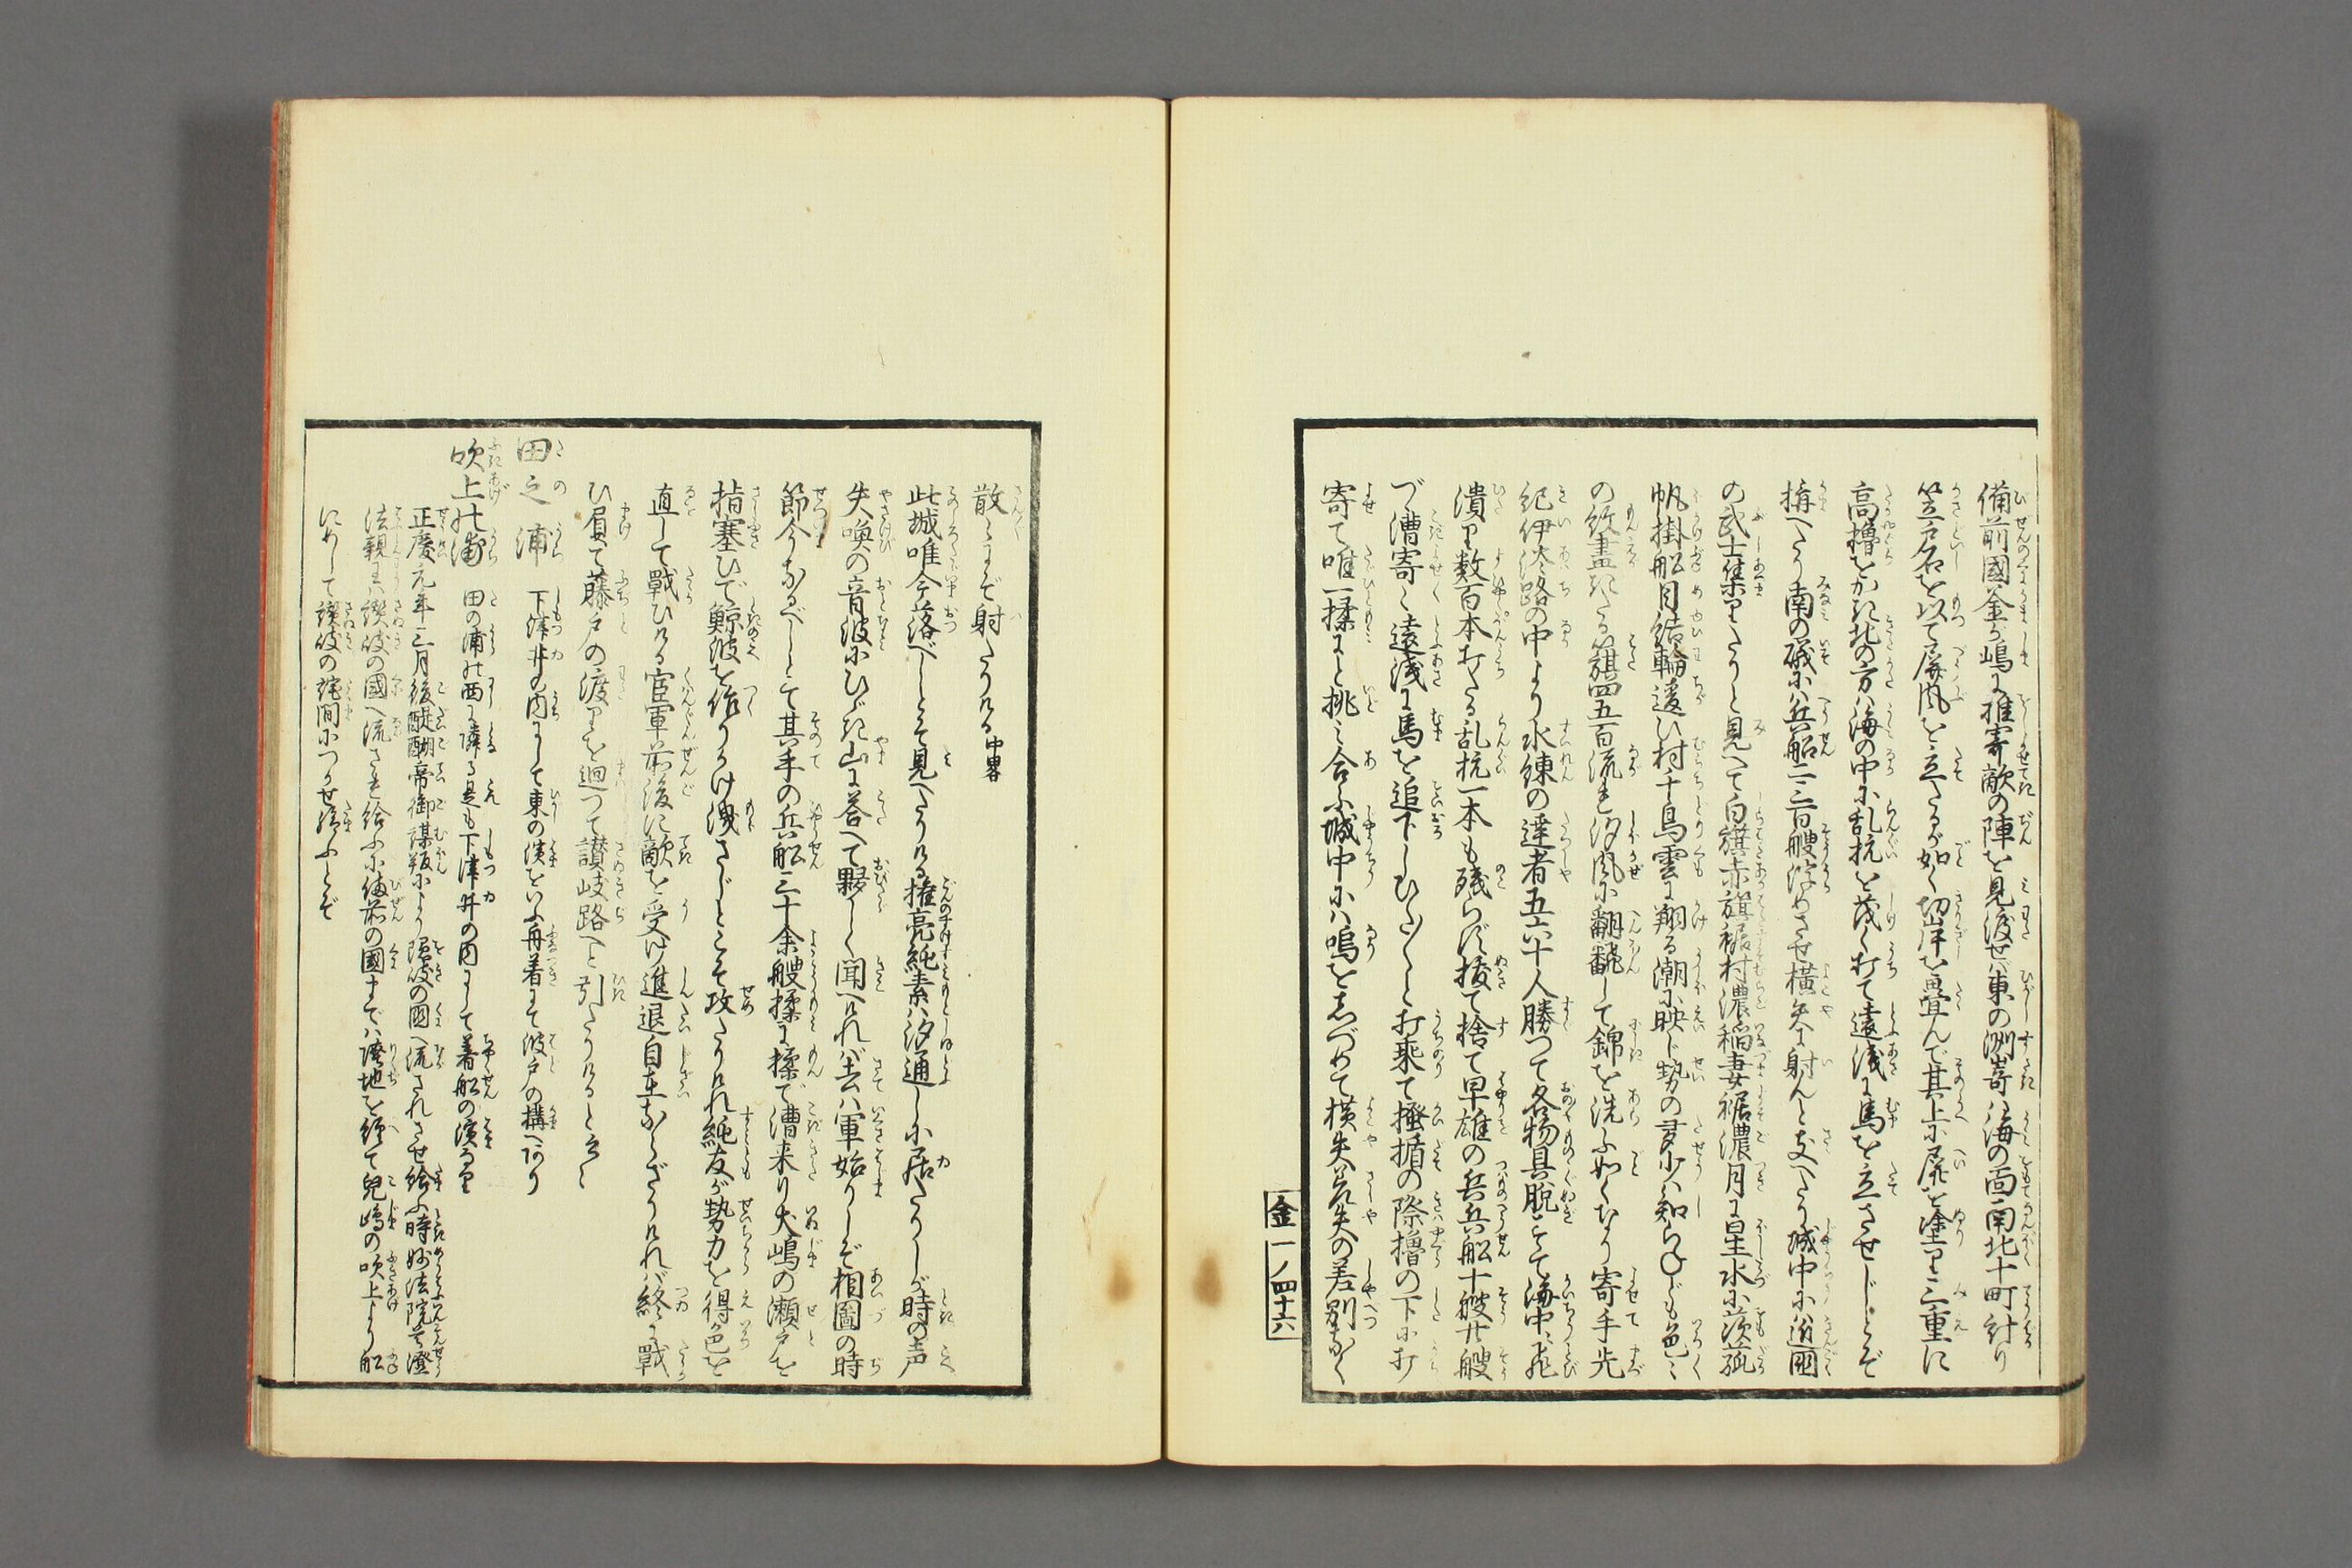 備前國釜ヶ嶋に推寄敵の陣を見渡せバ東の洲嵜ハ海の面南北十町計り
笠戸石を以て屏風を立たるが如く切岸を畳んで其上に屏を塗り三重に
高櫓をかき北の方ハ海の中に乱杭を茂く打て遠浅に馬を立させじとぞ
構へたり南の磯にハ兵船二三百艘浮めさせ横矢に射んと支へたり城中に近國
の武士集りたりと見へて白旗赤旗裾村濃稲妻裾濃月に星水に澤瀉
帆掛船目結輪違ひ村千鳥雲に翔る潮に映し勢の多少ハ知らねども色々
の紋盡したる籏四五百流れ汐風に翩飜して錦を洗ふ如くなり寄手先
紀伊淡路の中より水練の達者五六十人勝つて各物具脱すて海中に飛
潰り数百本打たる乱杭一本も残らず抜て捨て早雄の兵兵船十艘廿艘
づゝ漕寄く遠浅に馬を追下しひた〳〵と打乗て掻楯の際櫓の下に打
寄て唯一揉にと挑み合ふ城中にハ鳴をしづめて横矢差矢の差別なく
金 一ノ四十六
散々にぞ射たりける中畧
此城唯今落べしとそ見へたりける権亮純素ハ汐通しに居たりしが時の声
矢喚の音波にひゞき山に答へて夥しく聞へけれバ去ハ軍始りしぞ相圖の時
節今なるべしとて其手の兵船三十余艘揉に揉で漕来り犬嶋の瀬戸を
指塞ひで鯨波を作りかけ洩さじとこそ攻たりけれ純友が勢力を得色を
直して戰ひける官軍前後に敵を受け進退自在ならざりけれバ終に戰
ひ負て藤戸の渡りを廻つて讃岐路へと引たりけると云々
田之浦 下津井の内にして東の濱をいふ舟着にて波戸の構へあり
吹上の浦 田の浦の西に隣る是も下津井の内にして着船の濱なり
正慶元年三月後醍醐帝御謀叛により隠岐の國へ流されさせ給ふ時妙法院尊澄
法親王ハ讃岐の國へ流され給ふに備前の國まてハ陸地を經て兒嶋の吹上より船
にめして讃岐の詫間につかせ給ふとぞ